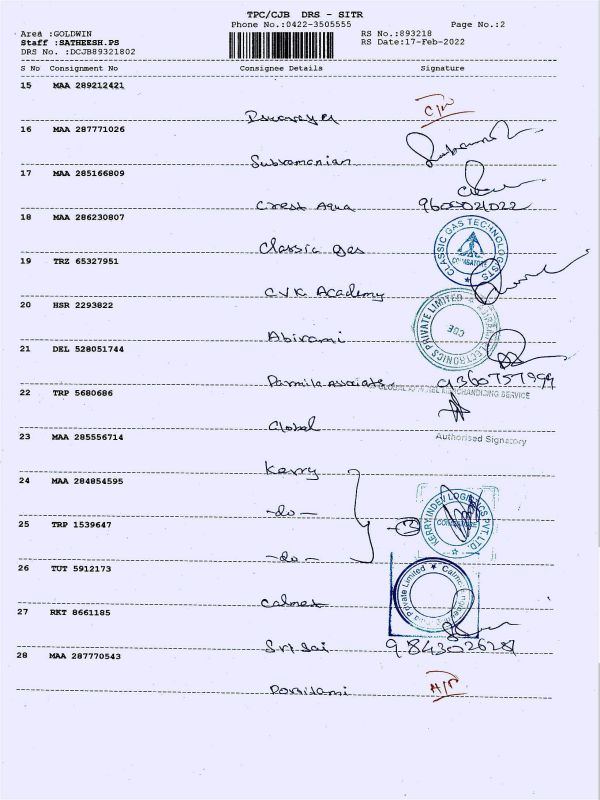 TPC/CJB DRS - SITR
Phone No.:0422-3505555 Page No.:2
Area :GOLDWIN RS No.:893218
Staff :SATHEESH.PS RS Date:17-Feb-2022
DRS No. :DCJB89321802
S No Consignment No Consignee Details Signature
15 MAA 289212421
16 MAA 287771026
Subramanian
17 MAA 285166809
Crest Aqua 9600021022
18 MAA 286230807
Classic Gas CLASSIC GAS TECHNOLOGISTS COIMBATORE
19 TRZ 65327951
CVK Academy
20 HSR 2293822
Abirami ELECTRONICS PRIVATE LIMITED CBE
21 DEL 528051744
Parmila Associate 9360757999
22 TRP 5680686 MERCHANDIZING SERVICE
Global Authorised Signatory
23 MAA 285556714
Kerry
24 MAA 284854595
-do- KERRY INDEV LOGISTICS PVT. LTD COIMBATORE
25 TRP 1539647 3
-do-
26 TUT 5912173
Calmet Private Limited
27 RKT 8661185
Sri Sai 9843026281
28 MAA 287770543